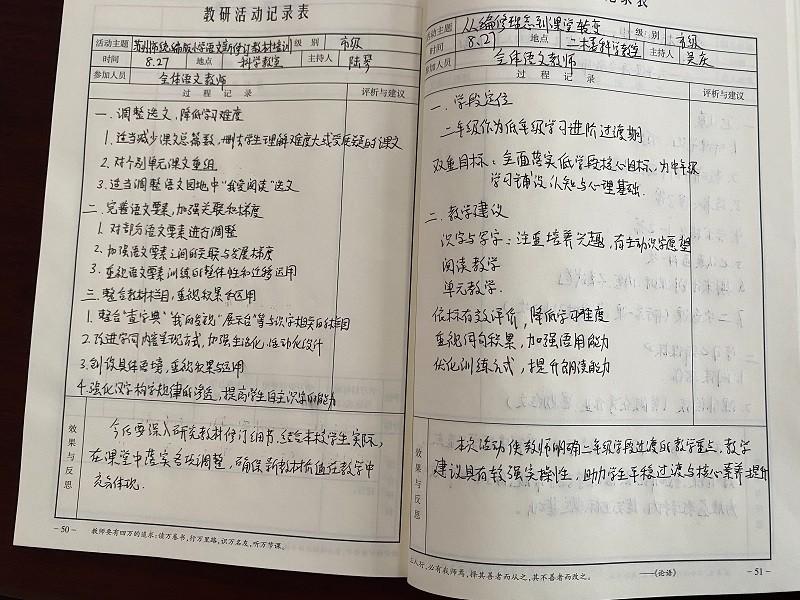 教研活动记录表
活动主题 苏州市统编版小学语文新修订教材培训 级别 市级
时间 8.27 地点 科学教室 主持人 陆琴
参加人员 全体语文教师
过程记录 评析与建议
一. 调整选文, 降低学习难度
1. 适当减少课文总篇数, 删去学生理解难度大或的课文
2. 对个别单元课文重组
3. 适当调整语文园地中“我爱阅读”选文
二. 完善语文要素, 加强关联和梯度
1. 对部分语文要素进行调整
2. 加强语文要素之间的关联与发展梯度
3. 重视语文要素训练的整体性和迁移运用
三. 整合教材栏目, 重视效果和运用
1. 整合“查字典”“我的发现”“展示台”等与识字相关的栏目
2. 改进字词内容呈现方式, 加强生活化, 活动化设计
3. 创设具体语境, 重视效果与运用
4. 强化汉字构字规律的渗透, 提高学生自主识字的能力
效果与反思
今后要深入研究教材修订细书, 结合本校学生实际,
在课堂中落实各项调整, 确保新教材价值在教学中
充分体现.
-50- 教师要有四万的追求:读万卷书,行万里路,识万名友,听万节课。
记录表
活动主题 从编修理念到课堂转变 级别 市级
时间 8.27 地点 二楼科学教室 主持人 吴庆
参加人员 全体语文教师
过程记录 评析与建议
一. 学段定位
二年级作为低年级学习进阶过渡期
双重目标: 全面落实低学段核心目标, 为中年级
学习铺设认知与心理基础.
二. 教学建议
识字与写字: 注重培养兴趣, 有主动识字愿望
阅读教学
单元教学.
依标有效评价, 降低学习难度
重视词句效果, 加强语用能力
优化训练方式, 提升朗读能力
效果与反思
本次活动使教师明确二年级学段过渡的教学重点, 教学
建议具有较强实操性, 助力学生平稳过渡与核心素养提升
三人行,必有我师焉,择其善者而从之,其不善者而改之。 ——《论语》 -51-